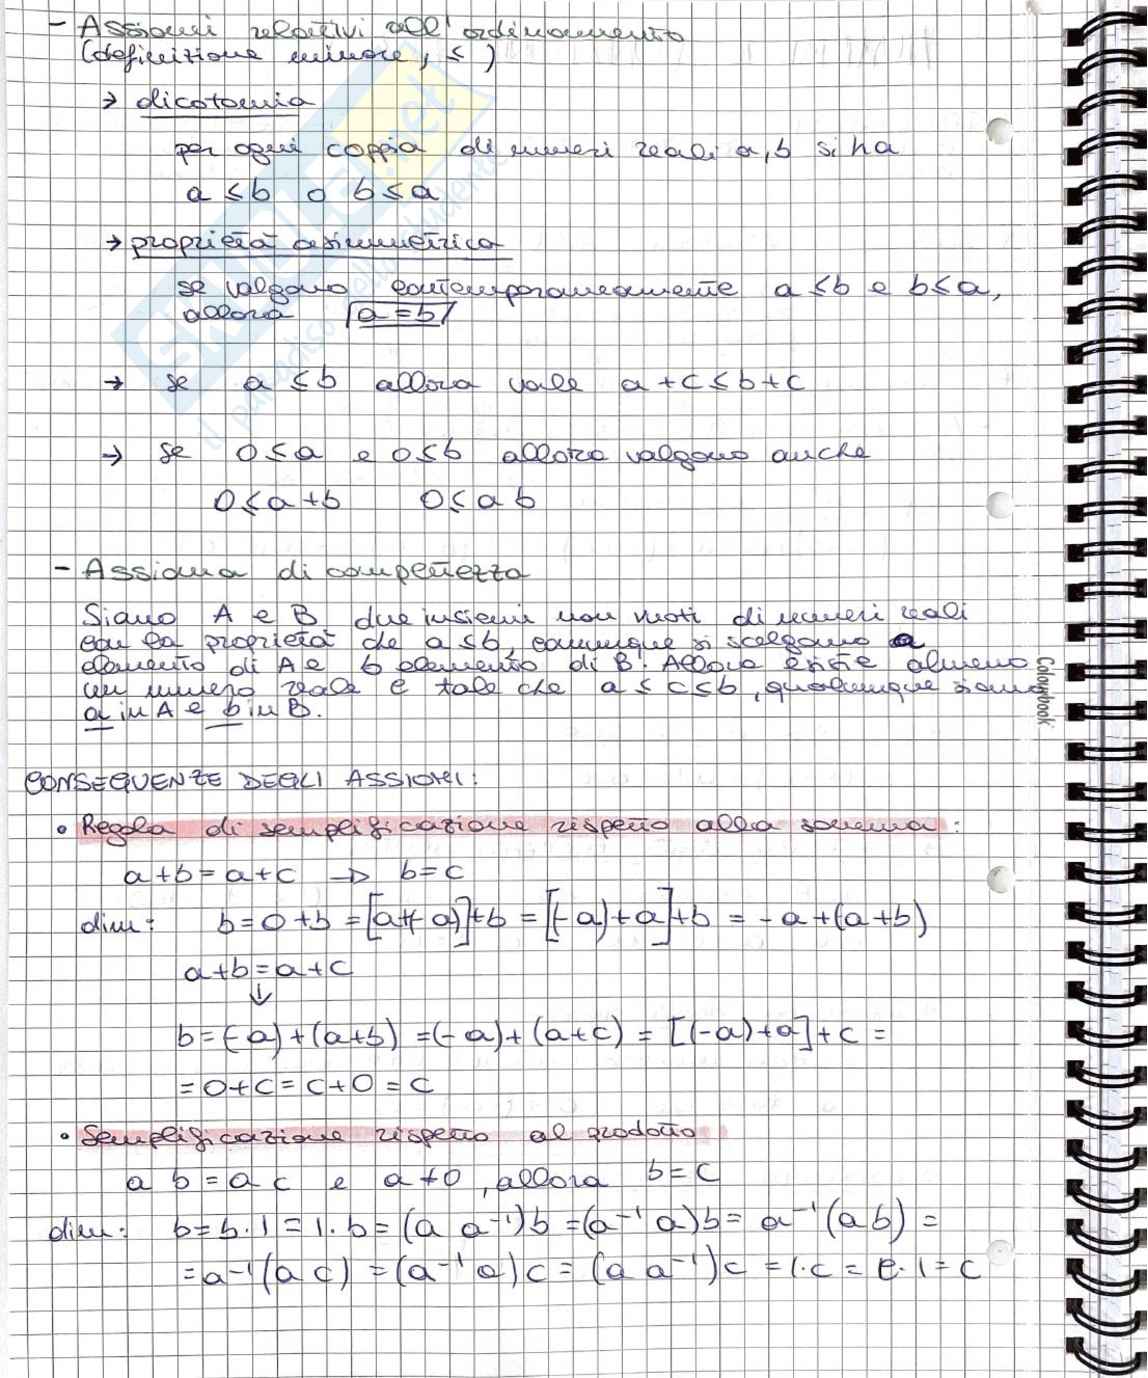 - Assiomi relativi all'ordinamento
(definizione minore, ≤)
→ dicotomia
per ogni coppia di numeri reali a, b si ha
a ≤ b o b ≤ a
→ proprietà asimmetrica
se valgono contemporaneamente a ≤ b e b ≤ a,
allora a = b
→ se a ≤ b allora vale a + c ≤ b + c
→ se 0 ≤ a e 0 ≤ b allora valgono anche
0 ≤ a + b 0 ≤ a b
- Assioma di competezza
Siano A e B due insiemi non vuoti di numeri reali
con la proprietà che a ≤ b, comunque si scelgano a
elemento di A e b elemento di B. Allora esiste almeno
un numero reale c tale che a ≤ c ≤ b, qualunque siano
a in A e b in B.
Colourbook
CONSEGUENZE DEGLI ASSIOMI:
• Regola di semplificazione rispetto alla somma:
a + b = a + c → b = c
dim: b = 0 + b = [a + (-a)] + b = [(-a) + a] + b = -a + (a + b)
a + b = a + c
↓
b = (-a) + (a + b) = (-a) + (a + c) = [(-a) + a] + c =
= 0 + c = c + 0 = c
• Semplificazione rispetto al prodotto
a b = a c e a ≠ 0, allora b = c
dim: b = b · 1 = 1 · b = (a a⁻¹) b = (a⁻¹ a) b = a⁻¹ (a b) =
= a⁻¹ (a c) = (a⁻¹ a) c = (a a⁻¹) c = 1 · c = c · 1 = c